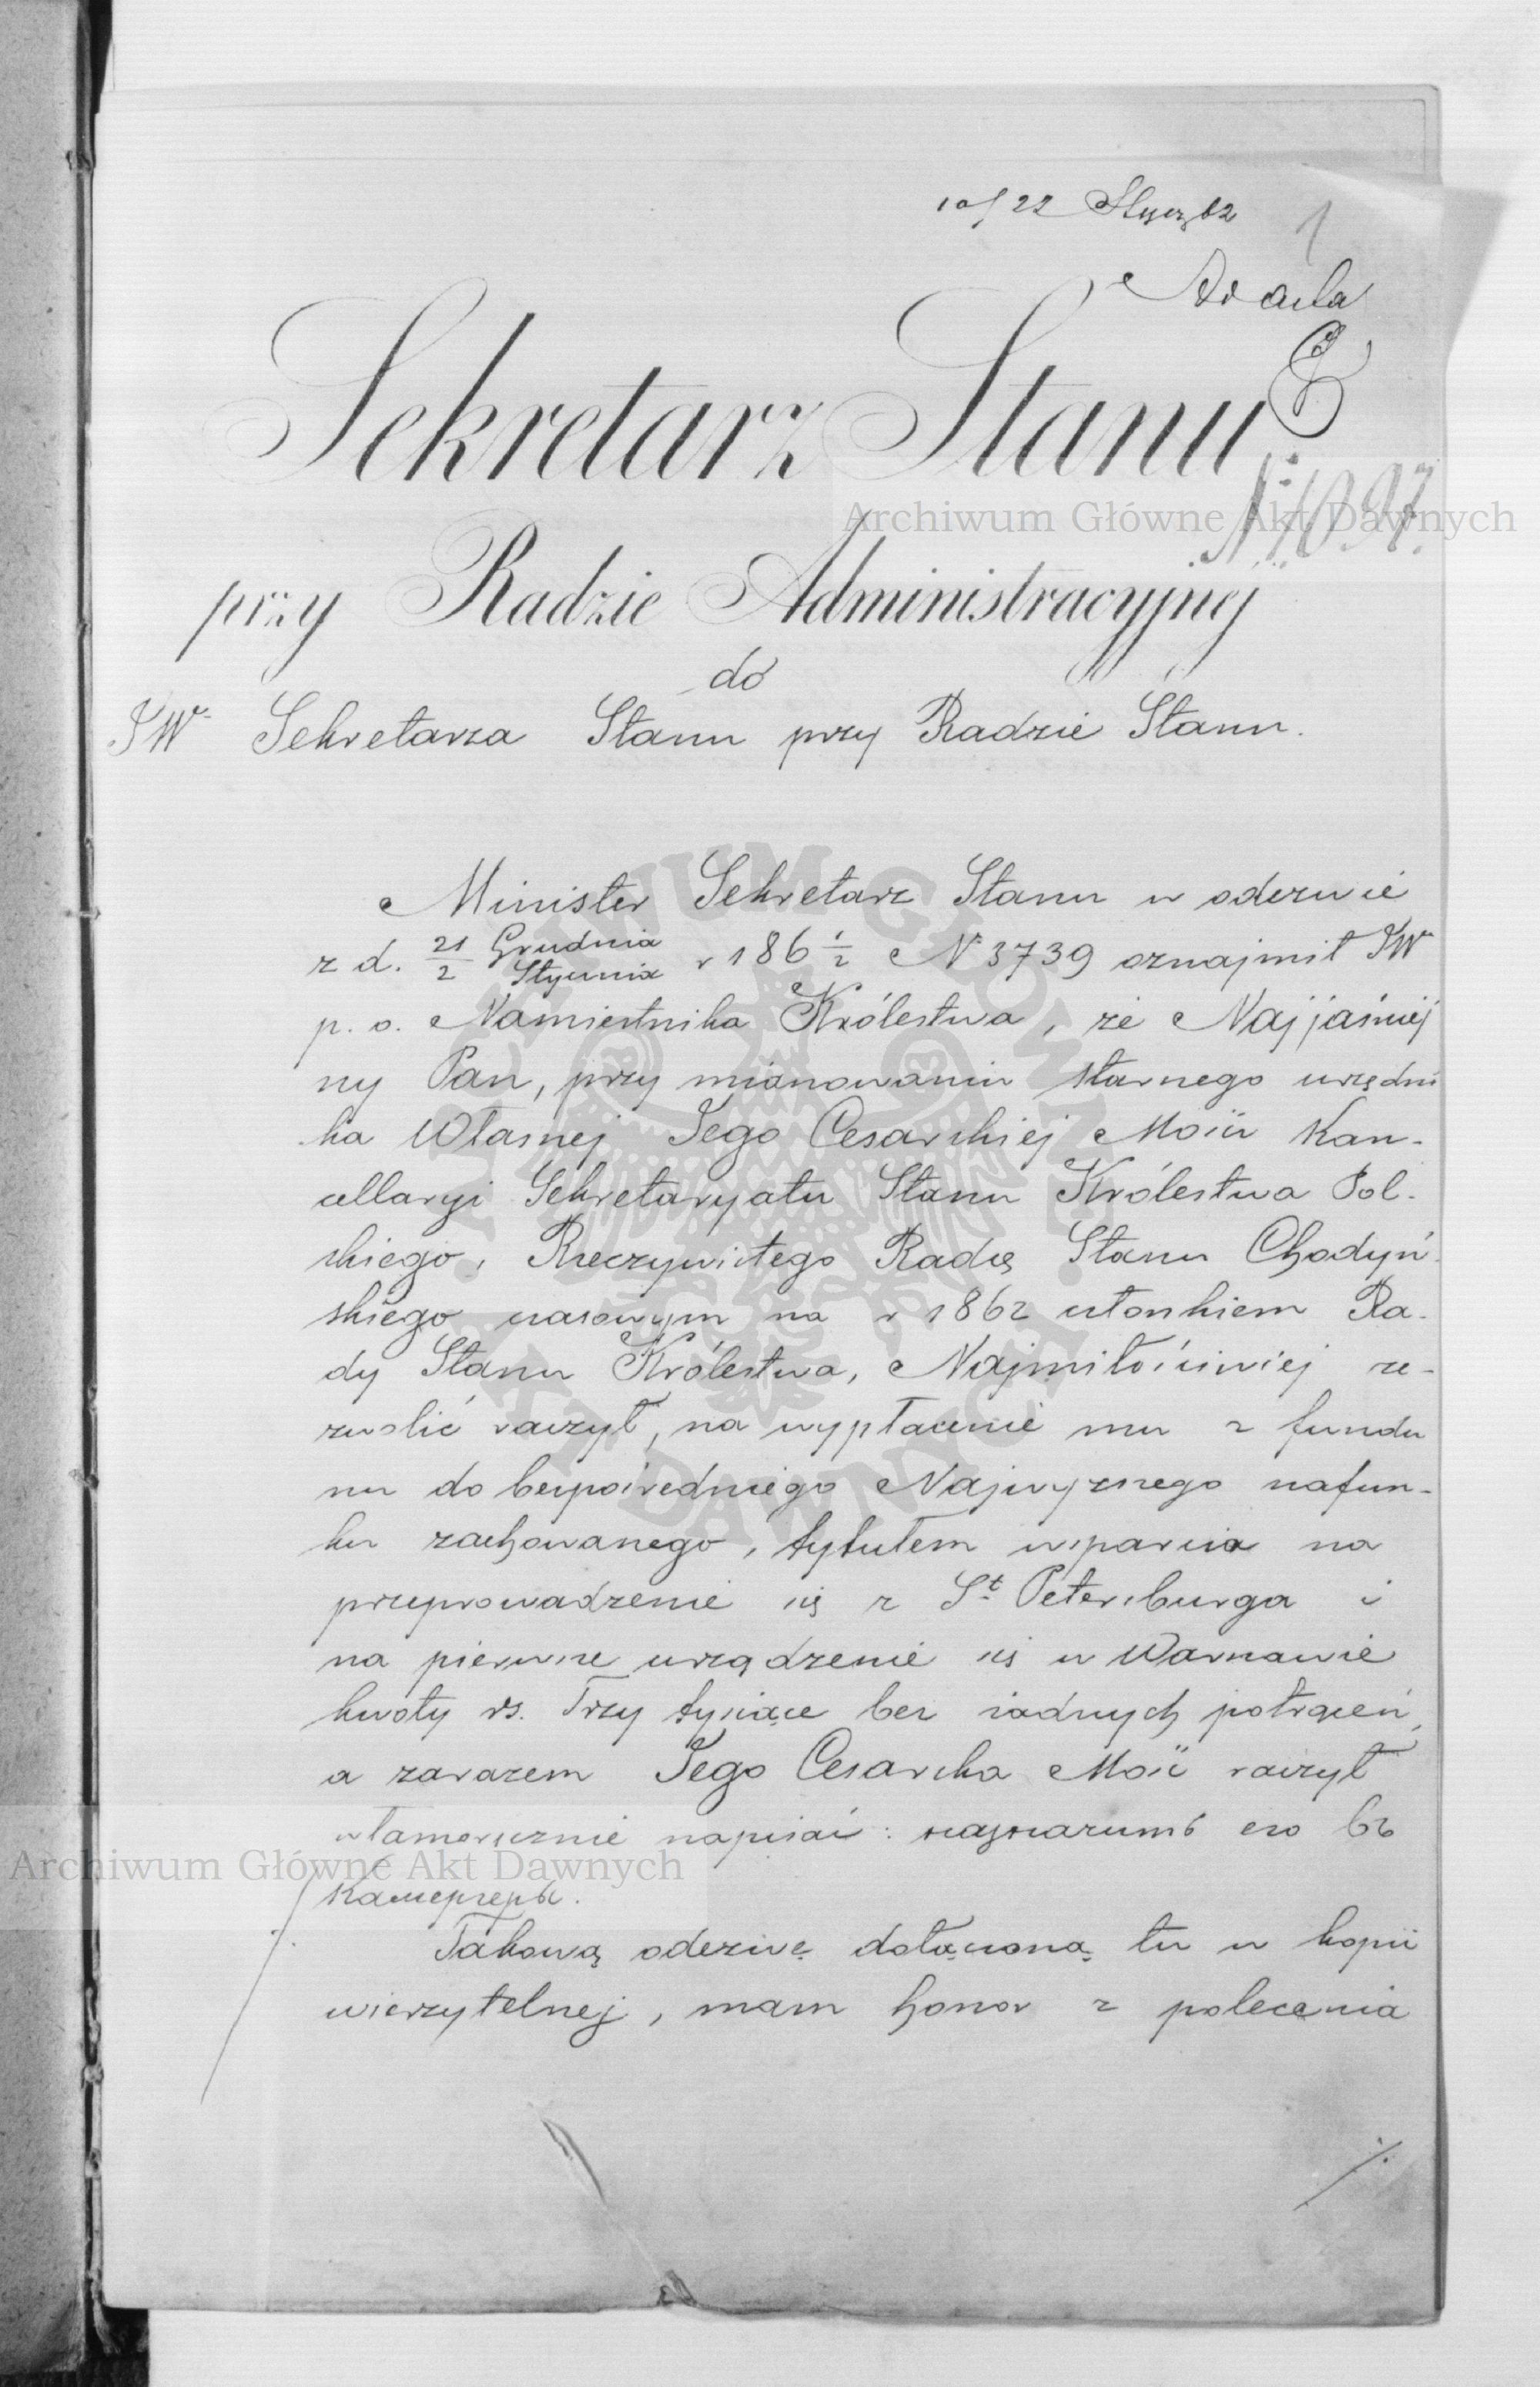 10/22 Stycz 62
1
Ad acta
Sekretarz Stanu
N: 1097.
przy Radzie Administracyjnej
do
JW Sekretarza Stanu przy Radzie Stanu.
Minister Sekretarz Stanu w odezwie
z d. 21/2 Grudnia/Stycznia r 186 1/2 N 3739 oznajmił JW
p. o. Namiestnika Królestwa, że Najjaśniej
ny Pan, przy mianowaniu starszego urzędni
ka Własnej Jego Cesarskiej Mości Kan-
cellaryi Sekretaryatu Stanu Królestwa Pol-
skiego, Rzeczywistego Radcę Stanu Chodyń-
skiego czasowym na r 1862 członkiem Ra-
dy Stanu Królestwa, Najmiłościwiej ze-
zwolić raczył, na wypłacenie mu z fundu
szu do bezpośredniego Najwyższego szafun-
ku zachowanego, tytułem wsparcia na
przeprowadzenie się z St Petersburga i
na pierwsze urządzenie się w Warszawie
kwoty rs. Trzy tysiące bez żadnych potrąceń,
a zarazem Jego Cesarska Mość raczył
własnoręcznie napisać: назначить его въ
Камергеры.
Takową odezwę dołączoną tu w kopii
wierzytelnej, mam honor z polecenia
./.
Archiwum Główne Akt Dawnych
Archiwum Główne Akt Dawnych
ARCHIWUM GŁÓWNE AKT DAWNYCH